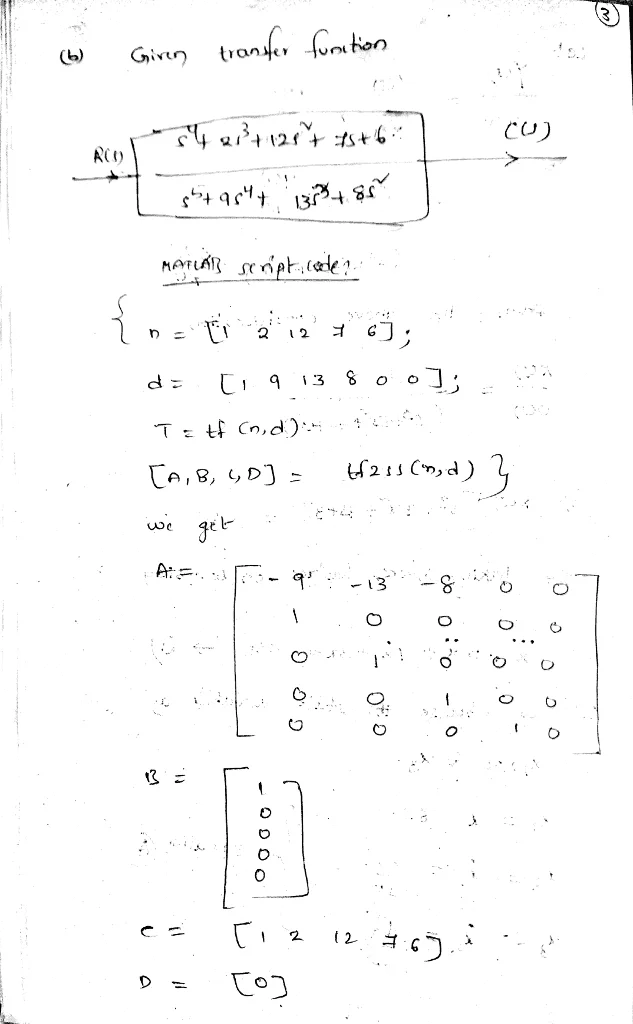 3
(b) Given transfer function
R(s) s⁴+2s³+12s²+7s+6 C(s)
s⁵+9s⁴+13s³+8s²
MATLAB script code:
{ n = [1 2 12 7 6];
d = [1 9 13 8 0 0];
T = tf (n,d)
[A,B,C,D] = tf2ss(n,d) }
we get
A = [ -9 -13 -8 0 0
1 0 0 0 0
0 1 0 0 0
0 0 1 0 0
0 0 0 1 0 ]
B = [ 1
0
0
0
0 ]
C = [1 2 12 7 6]
D = [0]